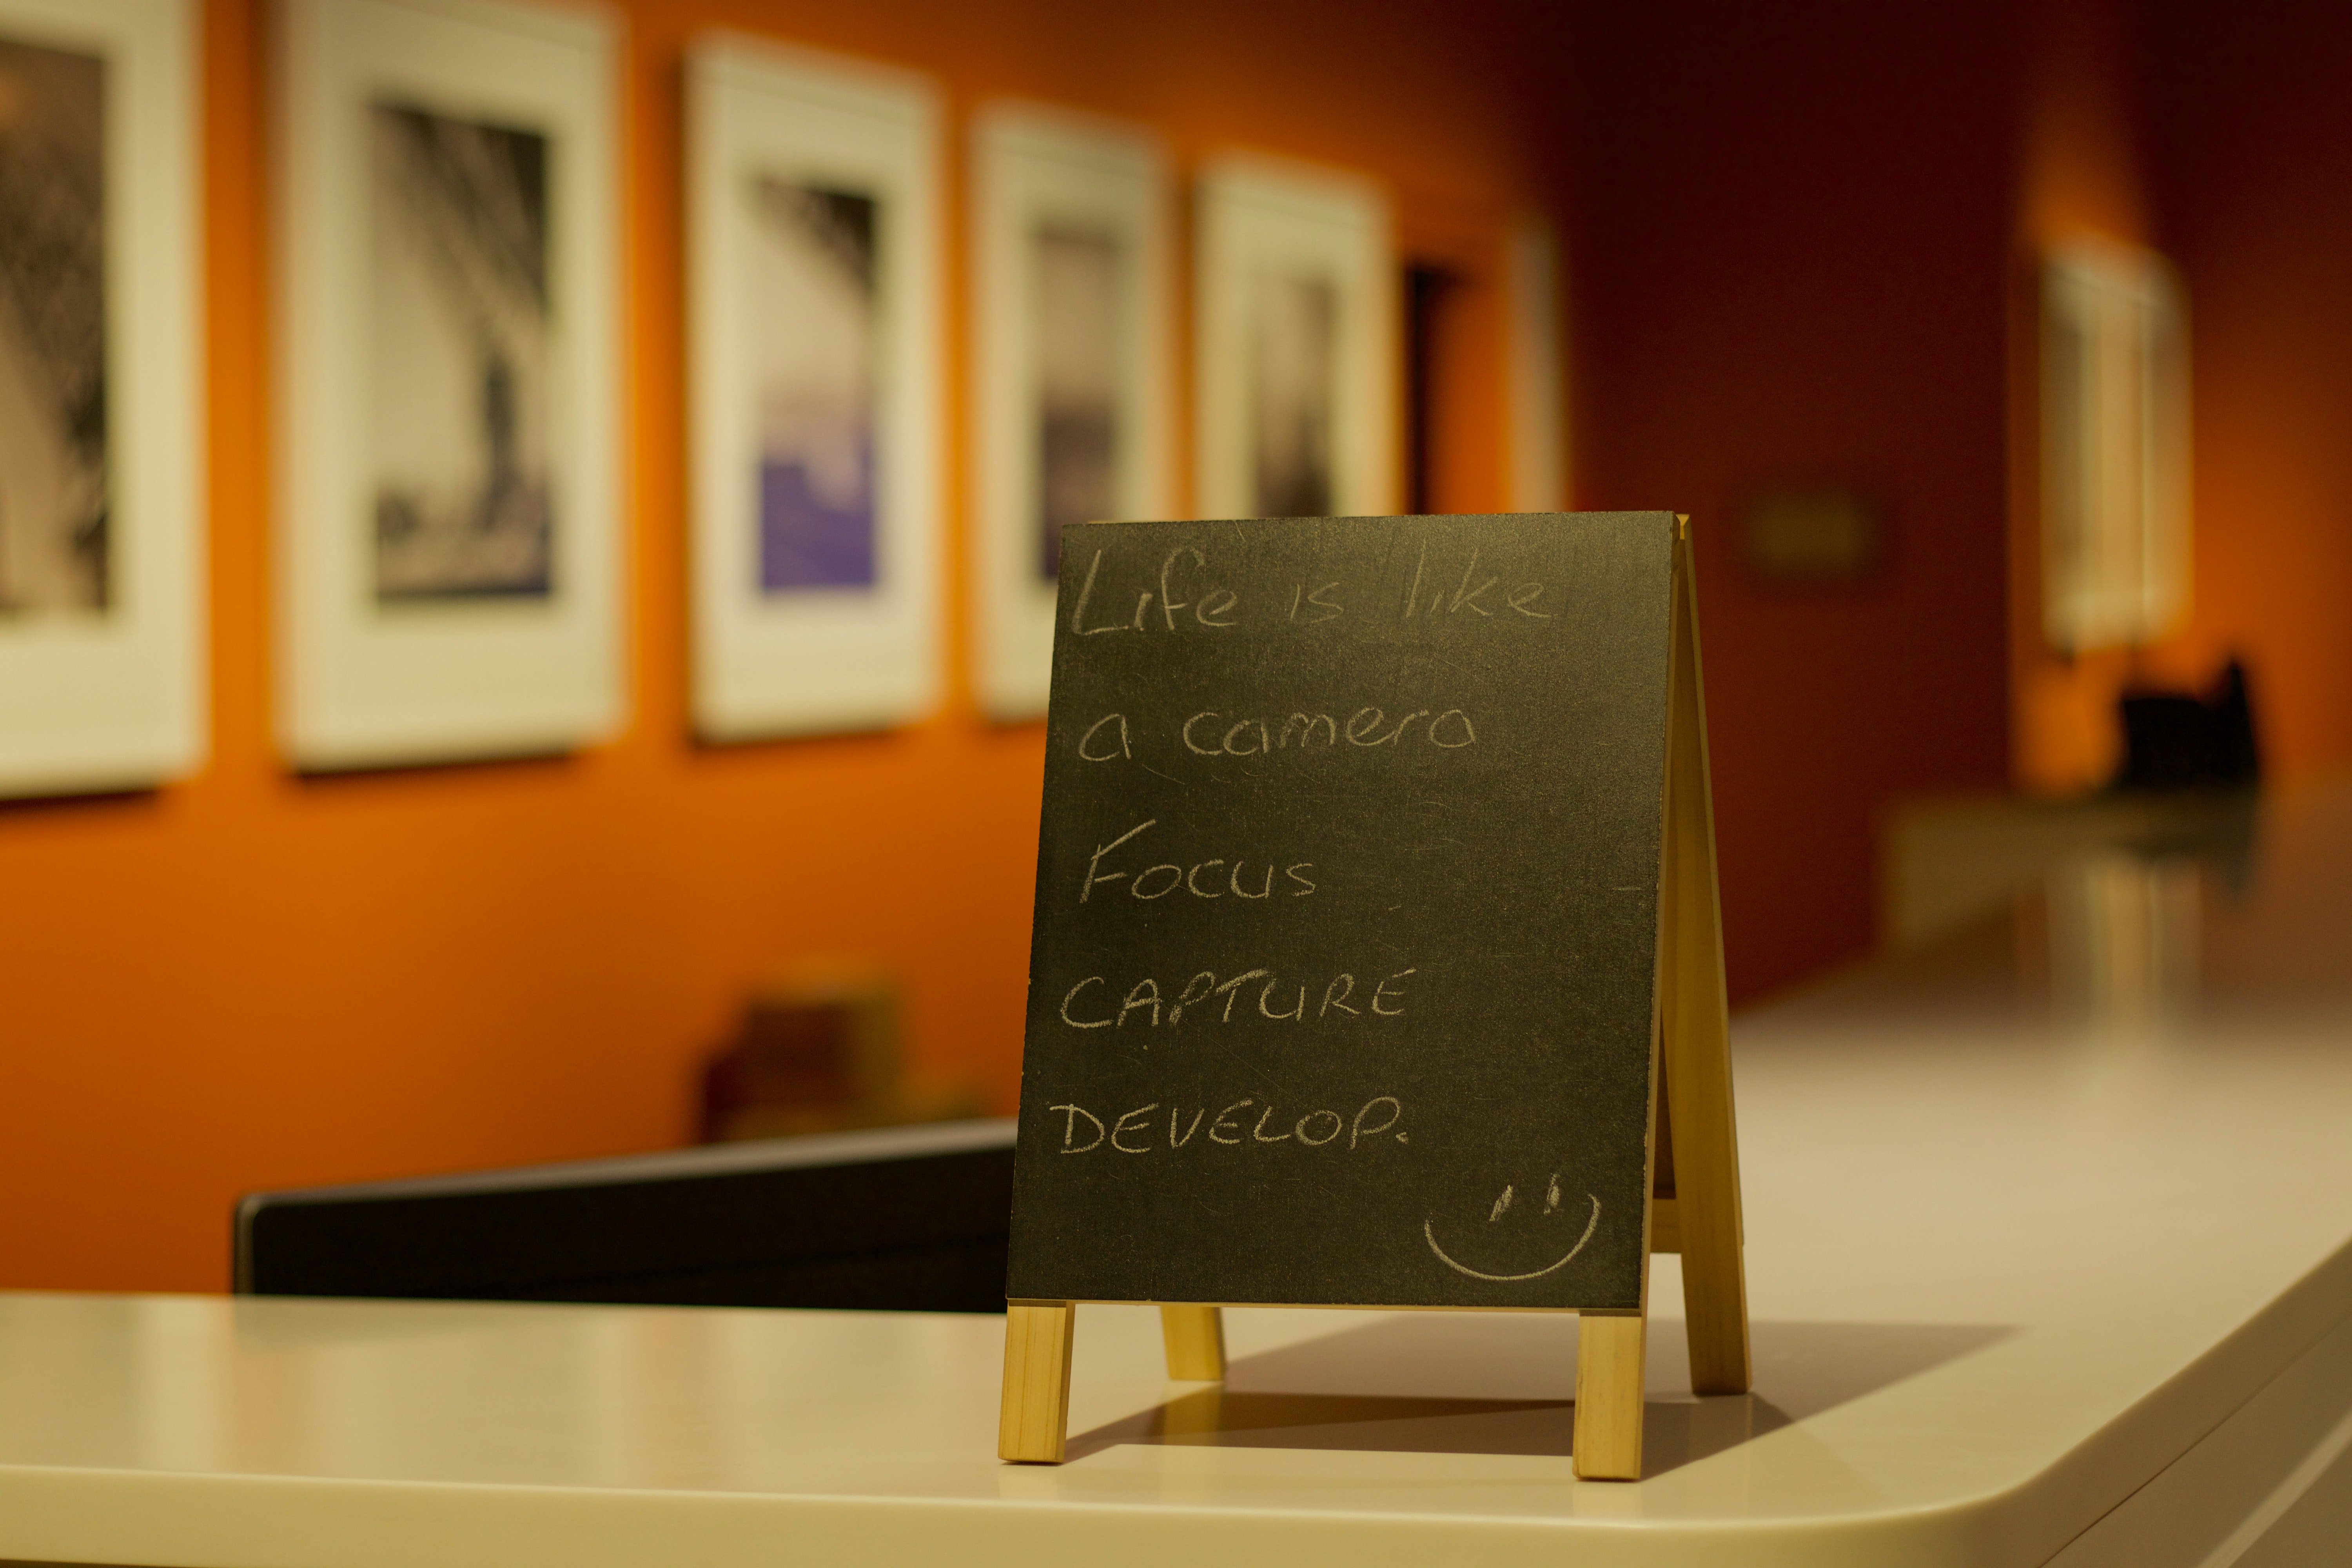 Life is like
a camera
Focus
CAPTURE
DEVELOP.